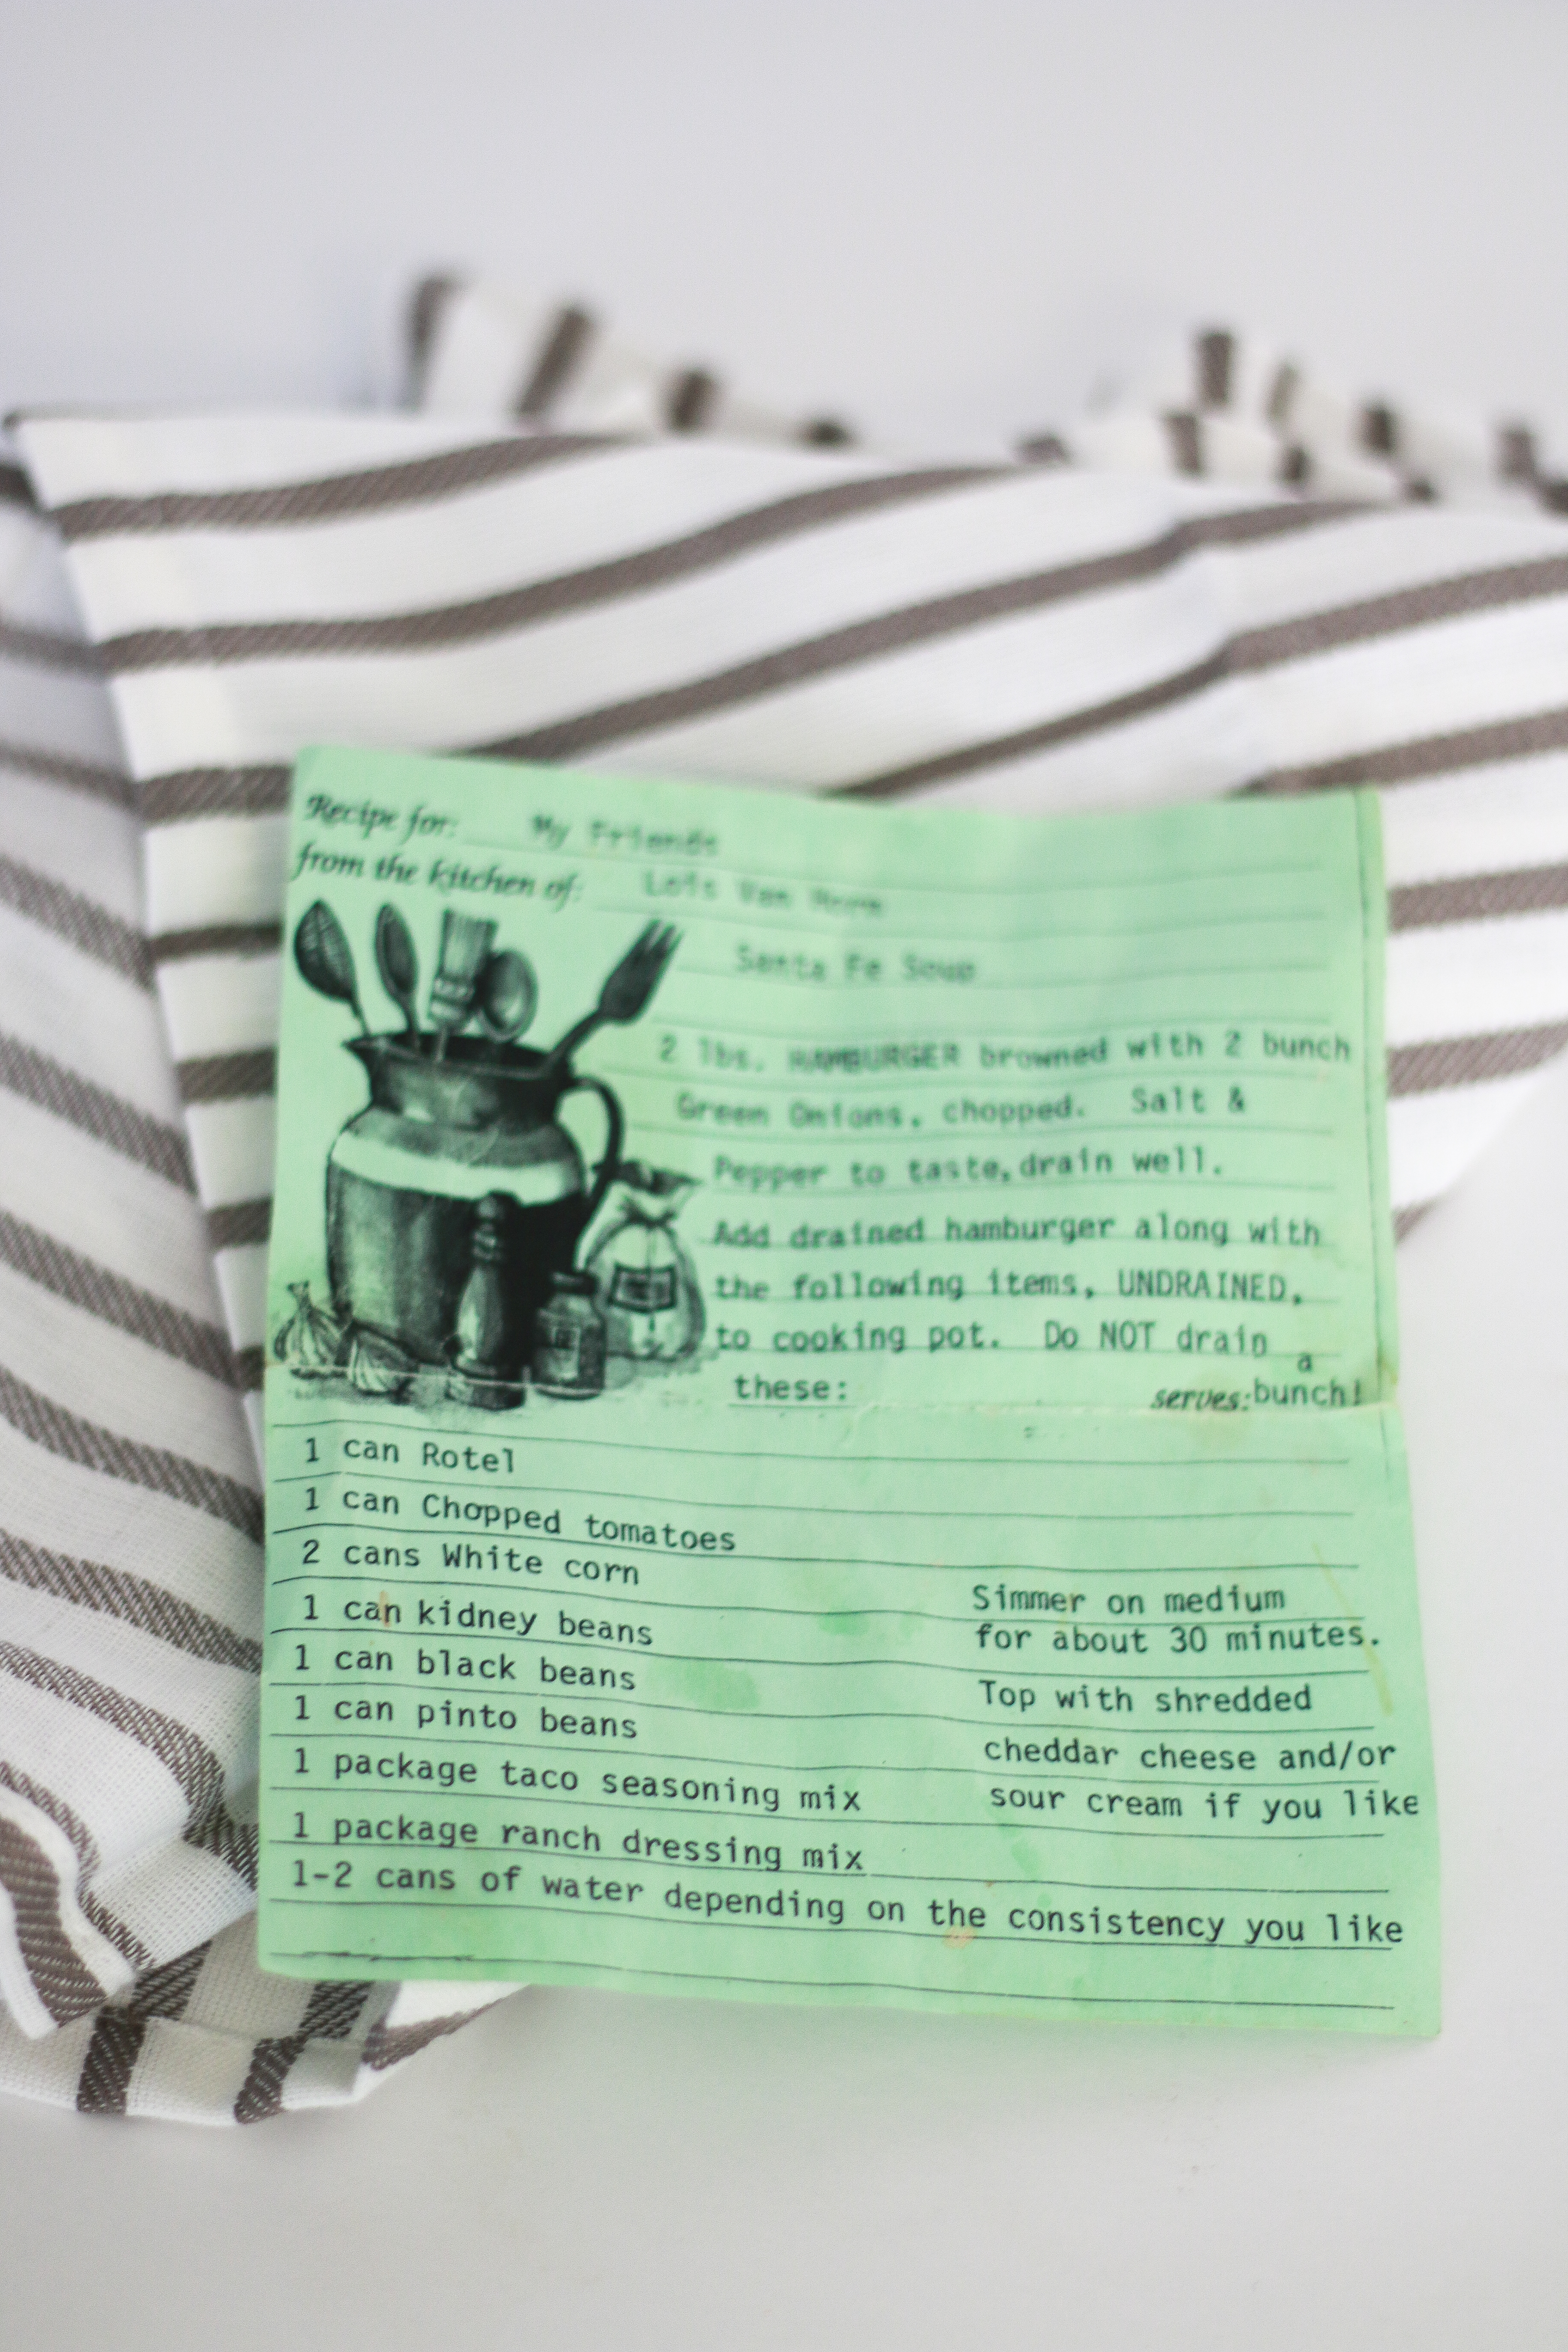 Recipe for: My Friends
from the kitchen of: Lois Van Horn
Santa Fe Soup
2 lbs. HAMBURGER browned with 2 bunch
Green Onions, chopped. Salt &
Pepper to taste, drain well.
Add drained hamburger along with
the following items, UNDRAINED,
to cooking pot. Do NOT drain
these:
serves: a bunch!
1 can Rotel
1 can Chopped tomatoes
2 cans White corn
1 can kidney beans
1 can black beans
1 can pinto beans
1 package taco seasoning mix
1 package ranch dressing mix
1-2 cans of water depending on the consistency you like
Simmer on medium
for about 30 minutes.
Top with shredded
cheddar cheese and/or
sour cream if you like